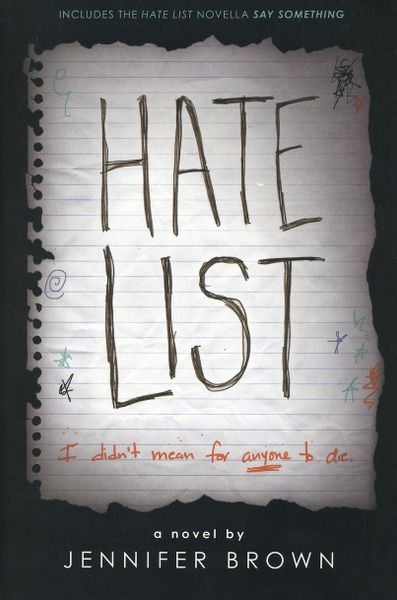 INCLUDES THE HATE LIST NOVELLA SAY SOMETHING
HATE
LIST
I didn't mean for anyone to die.
a novel by
JENNIFER BROWN